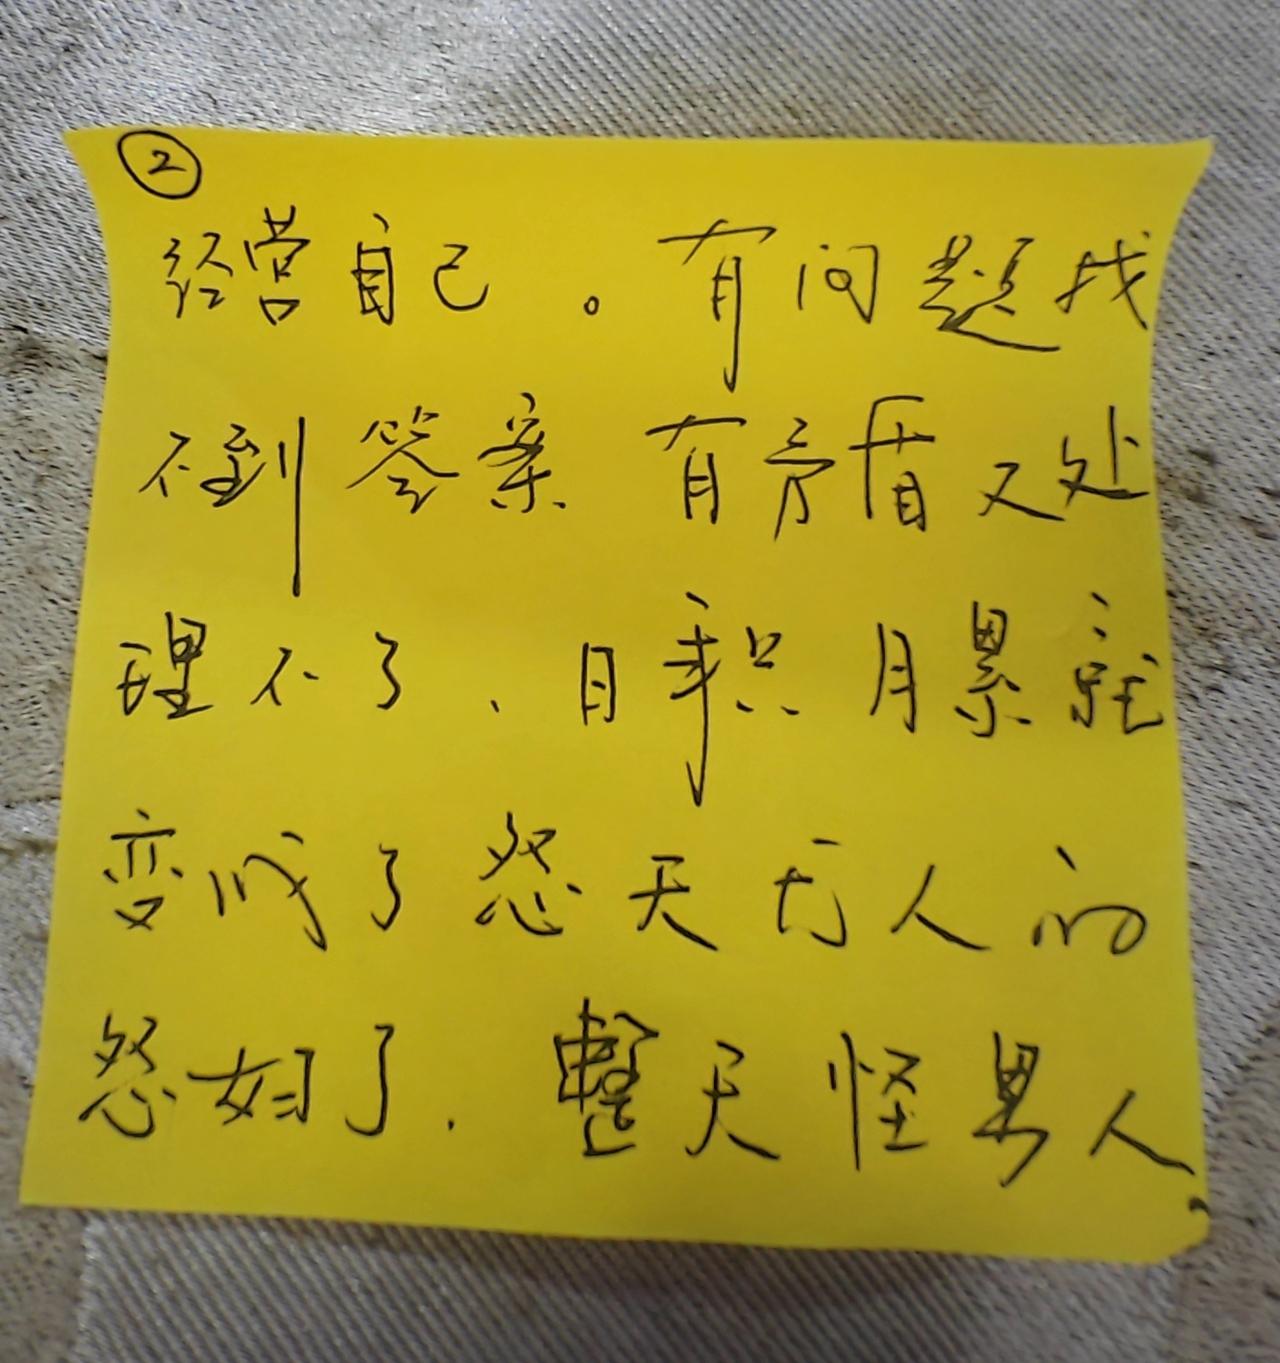 ②
经营自己。有问题找
不到答案 有矛盾又处
理不了、日积月累就
变成了怨天尤人的
怨妇了.整天怪男人、